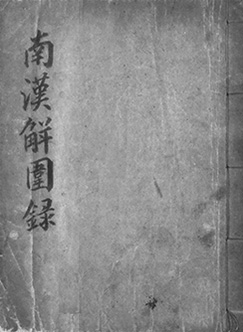 南漢解圍錄